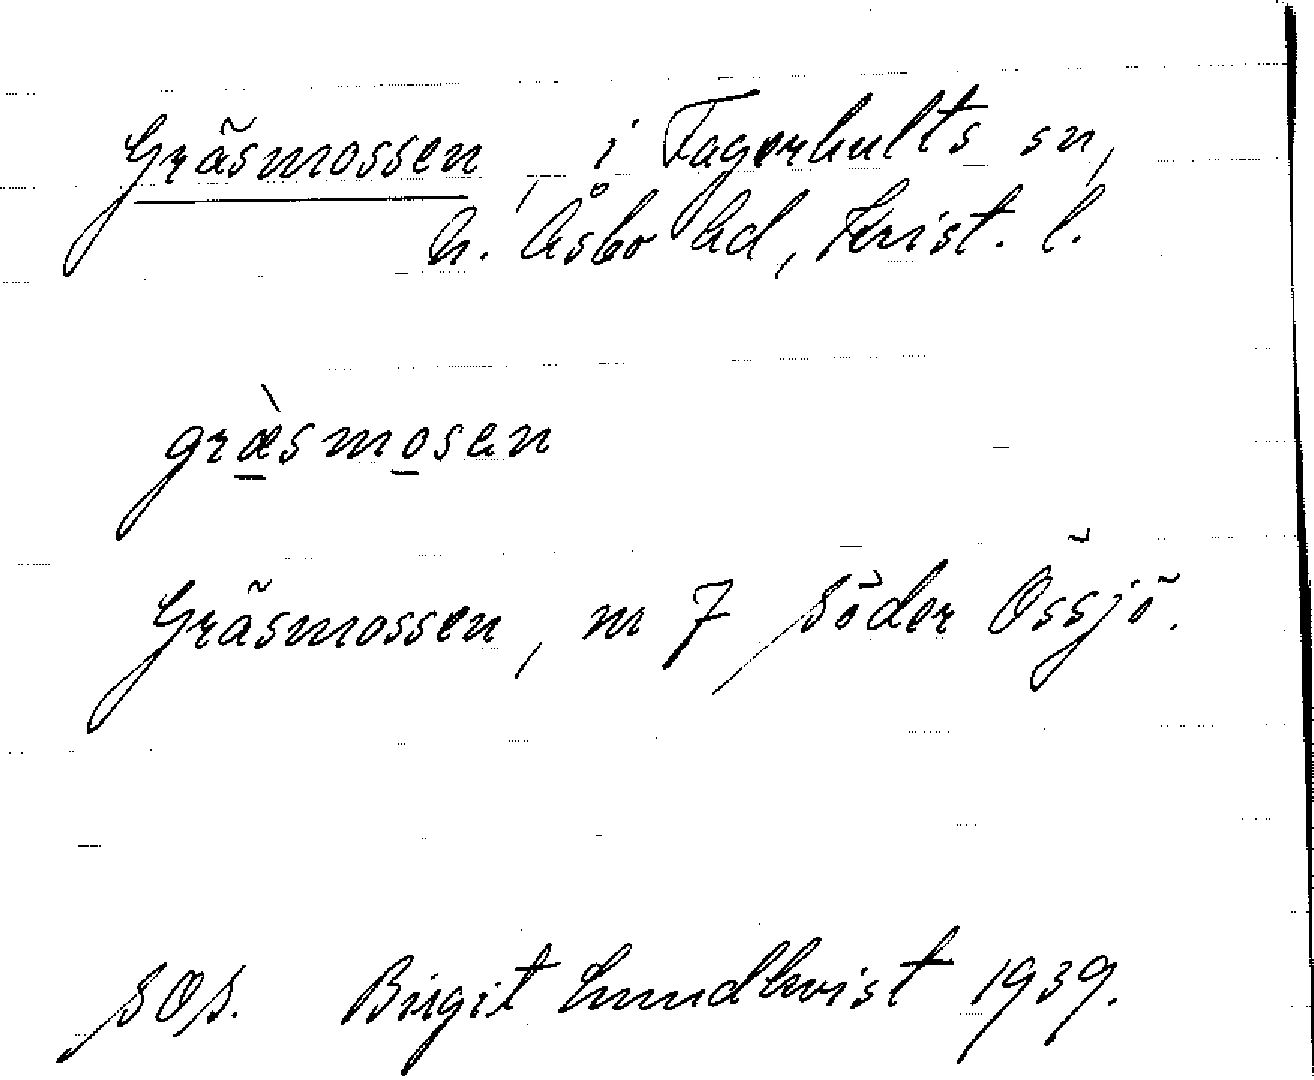 Gräsmossen, i Fagerhults sn,
N. Åsbo hd, Krist. l.
græ̀smosen
Gräsmossen, m 7 Söder Össjö.
SOS. Birgit Lundkvist 1939.